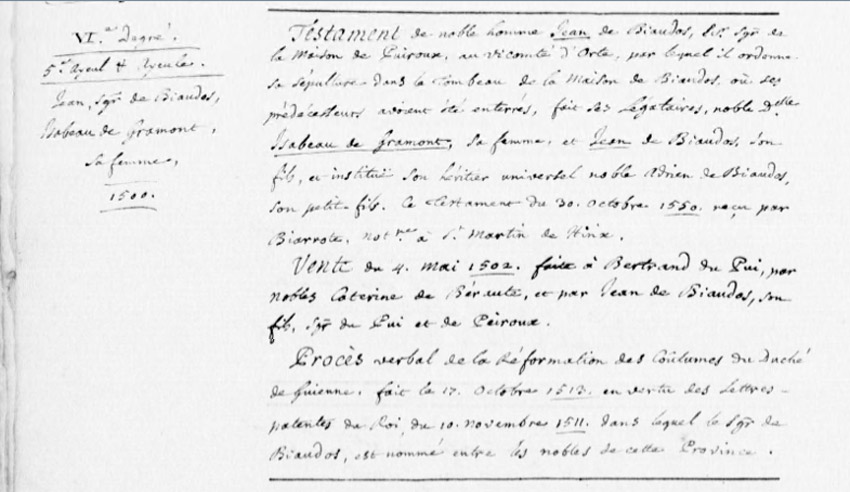 VI.e Degré.
5.es Ayeul & Ayeule.
Jean, Sgr de Biaudos,
Isabeau de Gramont,
sa femme,
1500.
Testament de noble homme Jean de Biaudos, Sgr de
la Maison de Peiroux, au vicomté d'Orte, par lequel il ordonne
sa sépulture dans le Tombeau de la Maison de Biaudos, où ses
prédécesseurs avoient été enterrés, fait ses Légataires, noble Dlle
Isabeau de Gramont, sa femme, et Jean de Biaudos, son
fils, et institue son héritier universel noble Adrien de Biaudos,
son petit-fils. Ce Testament du 30. Octobre 1550. reçu par
Biarrote, not.re à St Martin de Hinx.
Vente du 4. mai 1502. faite à Bertrand du Pui, par
nobles Caterine de Béraute, et par Jean de Biaudos, son
fils, Sgr du Pui et de Peiroux.
Procès verbal de la Réformation des Coûtumes du Duché
de Guienne, fait le 17. Octobre 1513. en vertu des Lettres-
patentes du Roi, du 10. novembre 1511. dans lequel le Sgr de
Biaudos, est nommé entre les nobles de cette Province.